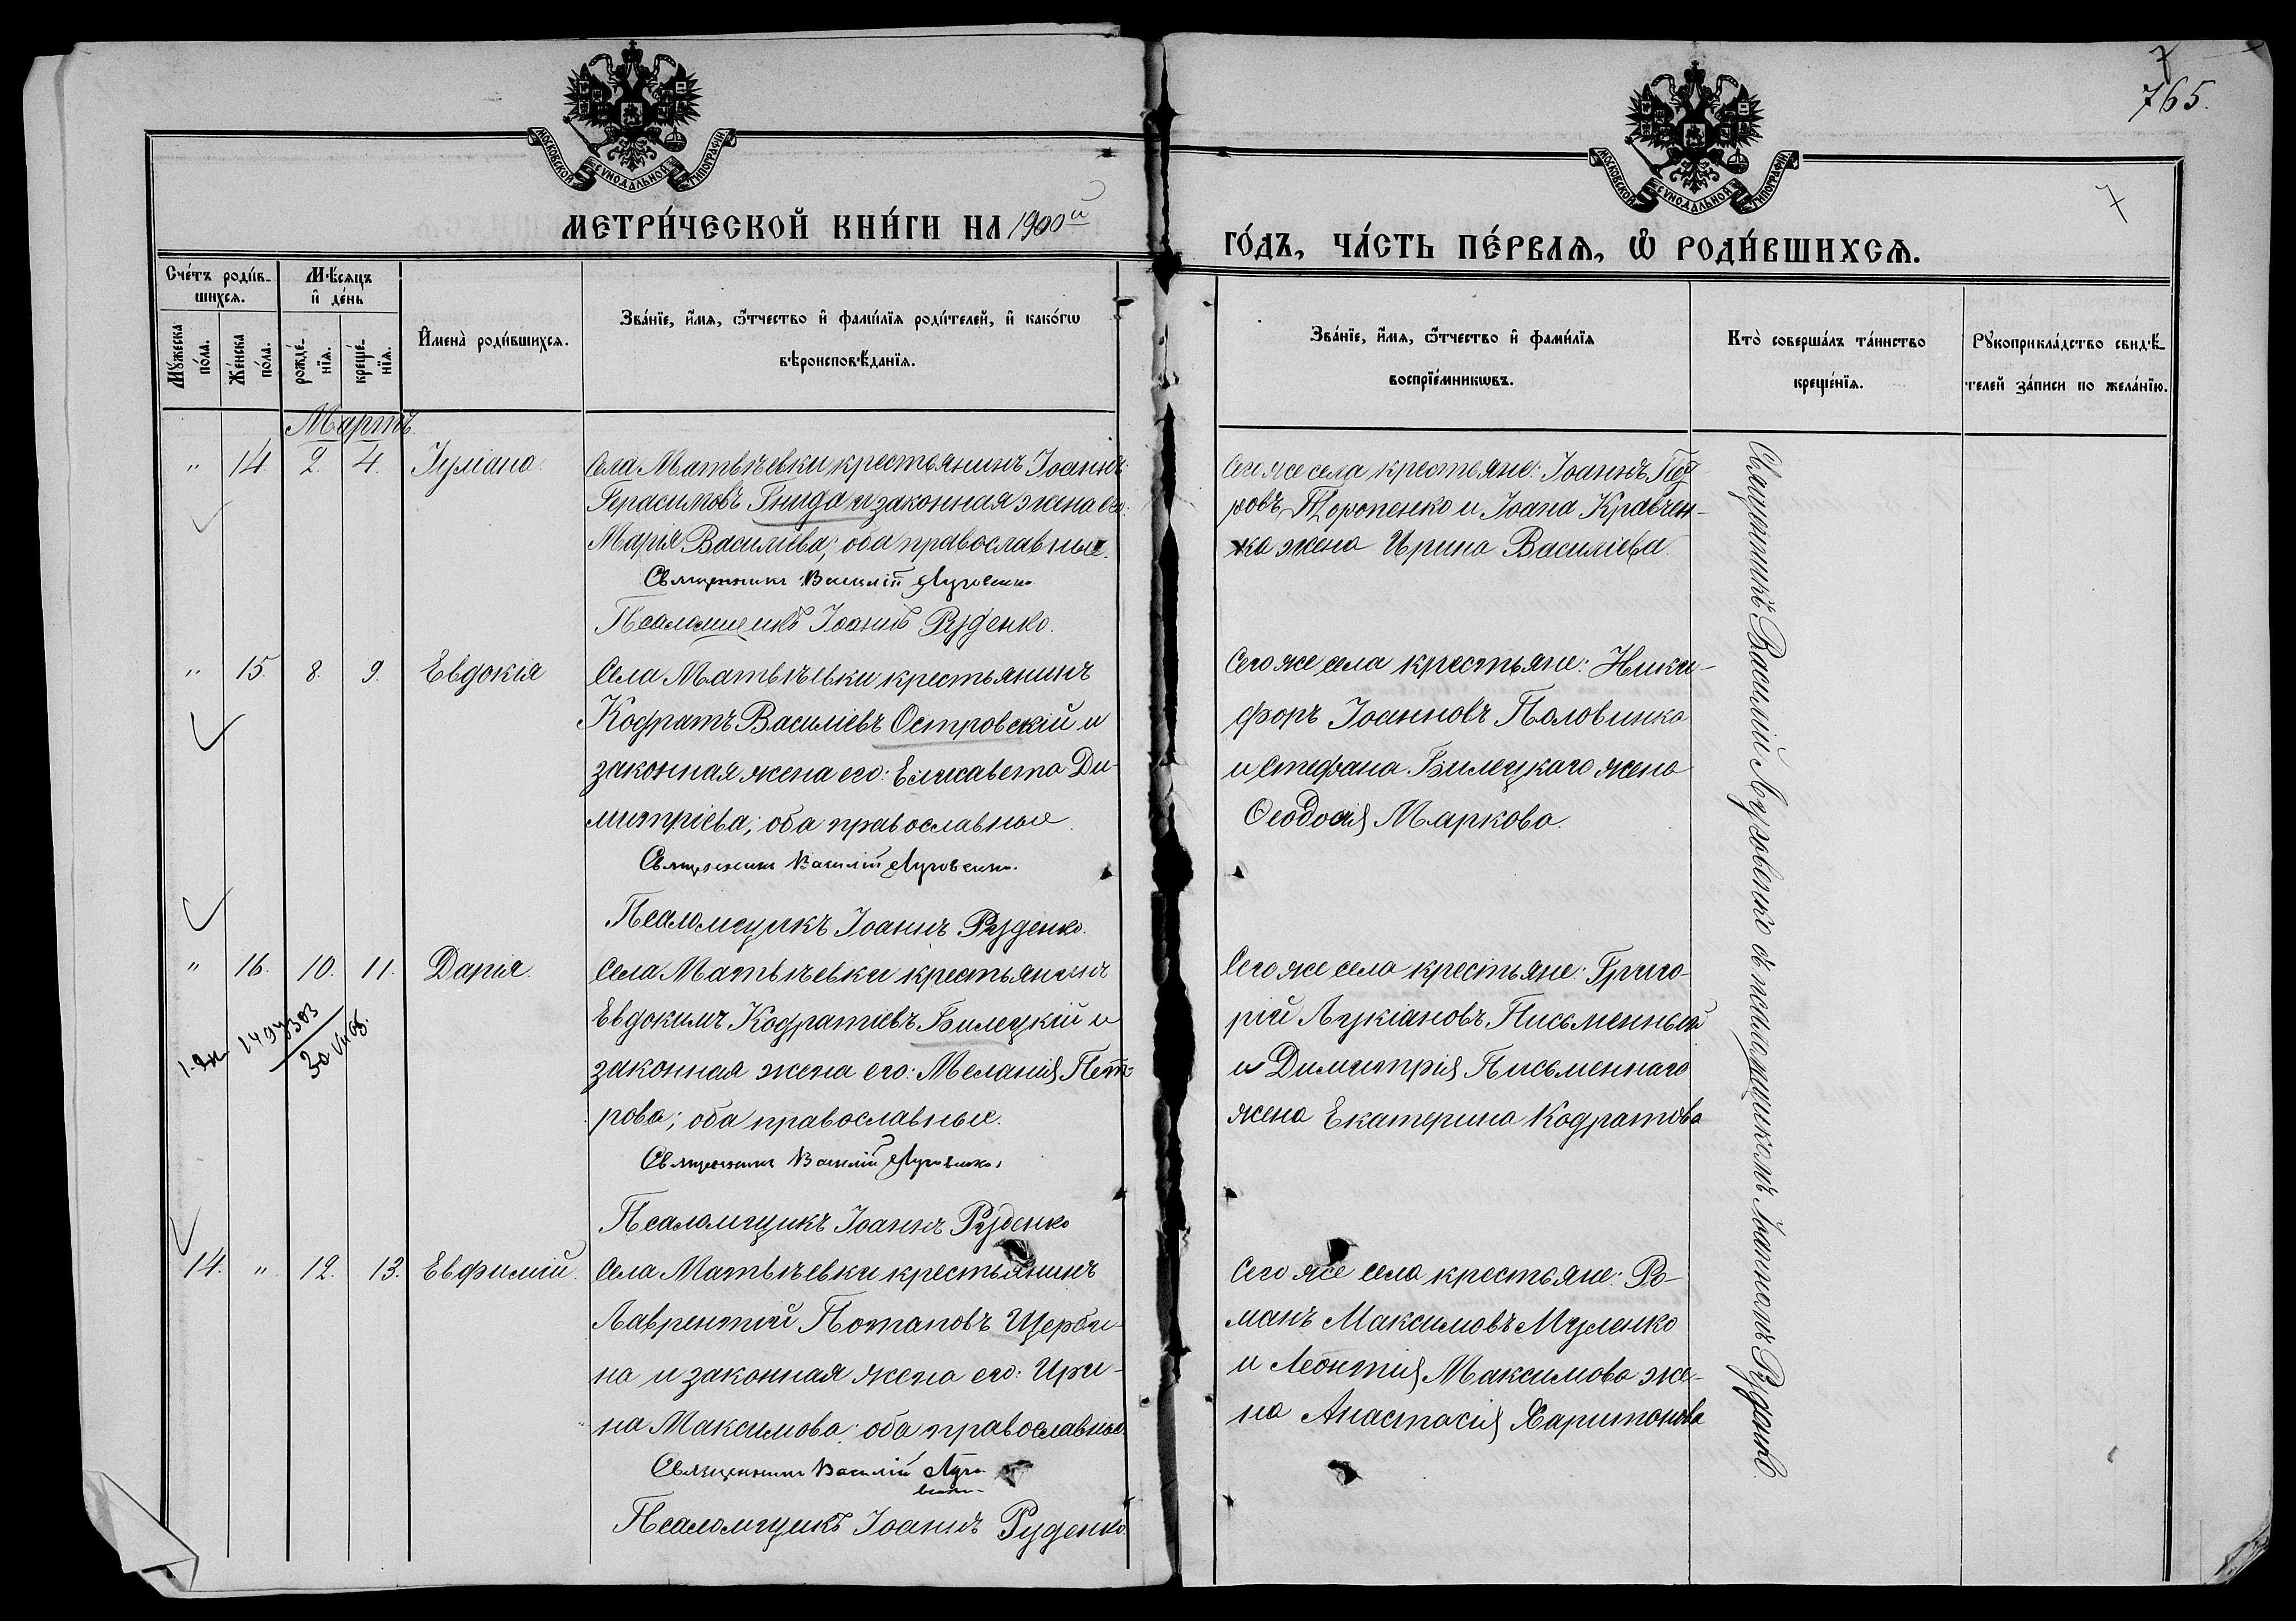 7
765.
7
МОСКОВСКОЙ СѴНОДАЛЬНОЙ ТИПОГРАФІИ
МОСКОВСКОЙ СѴНОДАЛЬНОЙ ТИПОГРАФІИ
МЕТРИ́ЧЕСКОЙ КНИ́ГИ НА 1900й
ГО́ДЪ, ЧА́СТЬ ПЕ́РВАѦ, Ѡ҆ РОДИ́ВШИХСѦ.
Сче́тъ роди́в-
шихсѧ.
Мꙋ́жеска по́ла.
Же́нска по́ла.
Мѣ́сѧцъ
и҆ де́нь
рожде́-
нїѧ.
креще́-
нїѧ.
И҆мена̀ роди́вшихсѧ.
Зва́нїе, и҆́мѧ, ѻ҆́тчество и҆ фами́лїѧ роди́телей, и҆ како́гѡ
вѣроисповѣ́данїѧ.
Зва́нїе, и҆́мѧ, ѻ҆́тчество и҆ фами́лїѧ
воспрїе́мникѡвъ.
Кто̀ соверша́лъ та́инство
креще́нїѧ.
Рꙋкоприкла́дство свидѣ́-
телей за́писи по жела́нїю.
Мартъ.
" 14. 2. 4. Іуліана.
Села Матвѣевки крестьянинъ Іоаннъ
Герасимовъ Гнида и законная жена его:
Марія Василіева; оба православные.
Священникъ Василій Луговенко
Псаломщикъ Іоаннъ Руденко.
Сего же села крестьяне: Іоаннъ Пет-
ровъ Торопенко и Іоана Кравчен-
ка жена Ирина Василіева
" 15. 8. 9. Евдокія
Села Матвѣевки крестьянинъ
Кодратъ Василіевъ Островскій и
законная жена его: Елисавета Ди-
митріева; оба православные.
Священникъ Василій Луговенко.
Псаломщикъ Іоаннъ Руденко.
Сего же села крестьяне: Ники-
форъ Іоанновъ Половинка
и Стефана Билецкаго жена
Ѳеодосія Маркова.
" 16. 10. 11. Дарія.
Села Матвѣевки крестьянинъ
Евдокимъ Кодратіевъ Билецкій и
законная жена его: Меланія Пет-
рова; оба православные.
Священникъ Василій Луговенко.
Псаломщикъ Іоаннъ Руденко
Сего же села крестьяне: Григо-
рій Лукіановъ Письменный
и Димитрія Письменнаго
жена Екатерина Кодратова
14. " 12. 13. Евфимій.
Села Матвѣевки крестьянинъ
Лаврентій Потаповъ Щерби-
на и законная жена его: Ири-
на Максимова; оба православные.
Священникъ Василій Луго
венко
Псаломщикъ Іоаннъ Руденко.
Сего же села крестьяне: Ро-
манъ Максимовъ Муленко
и Леонтія Максимова же-
на Анастасія Харитонова
Священникъ Василій Луговенко съ псаломщикомъ Іоанномъ Руденко.